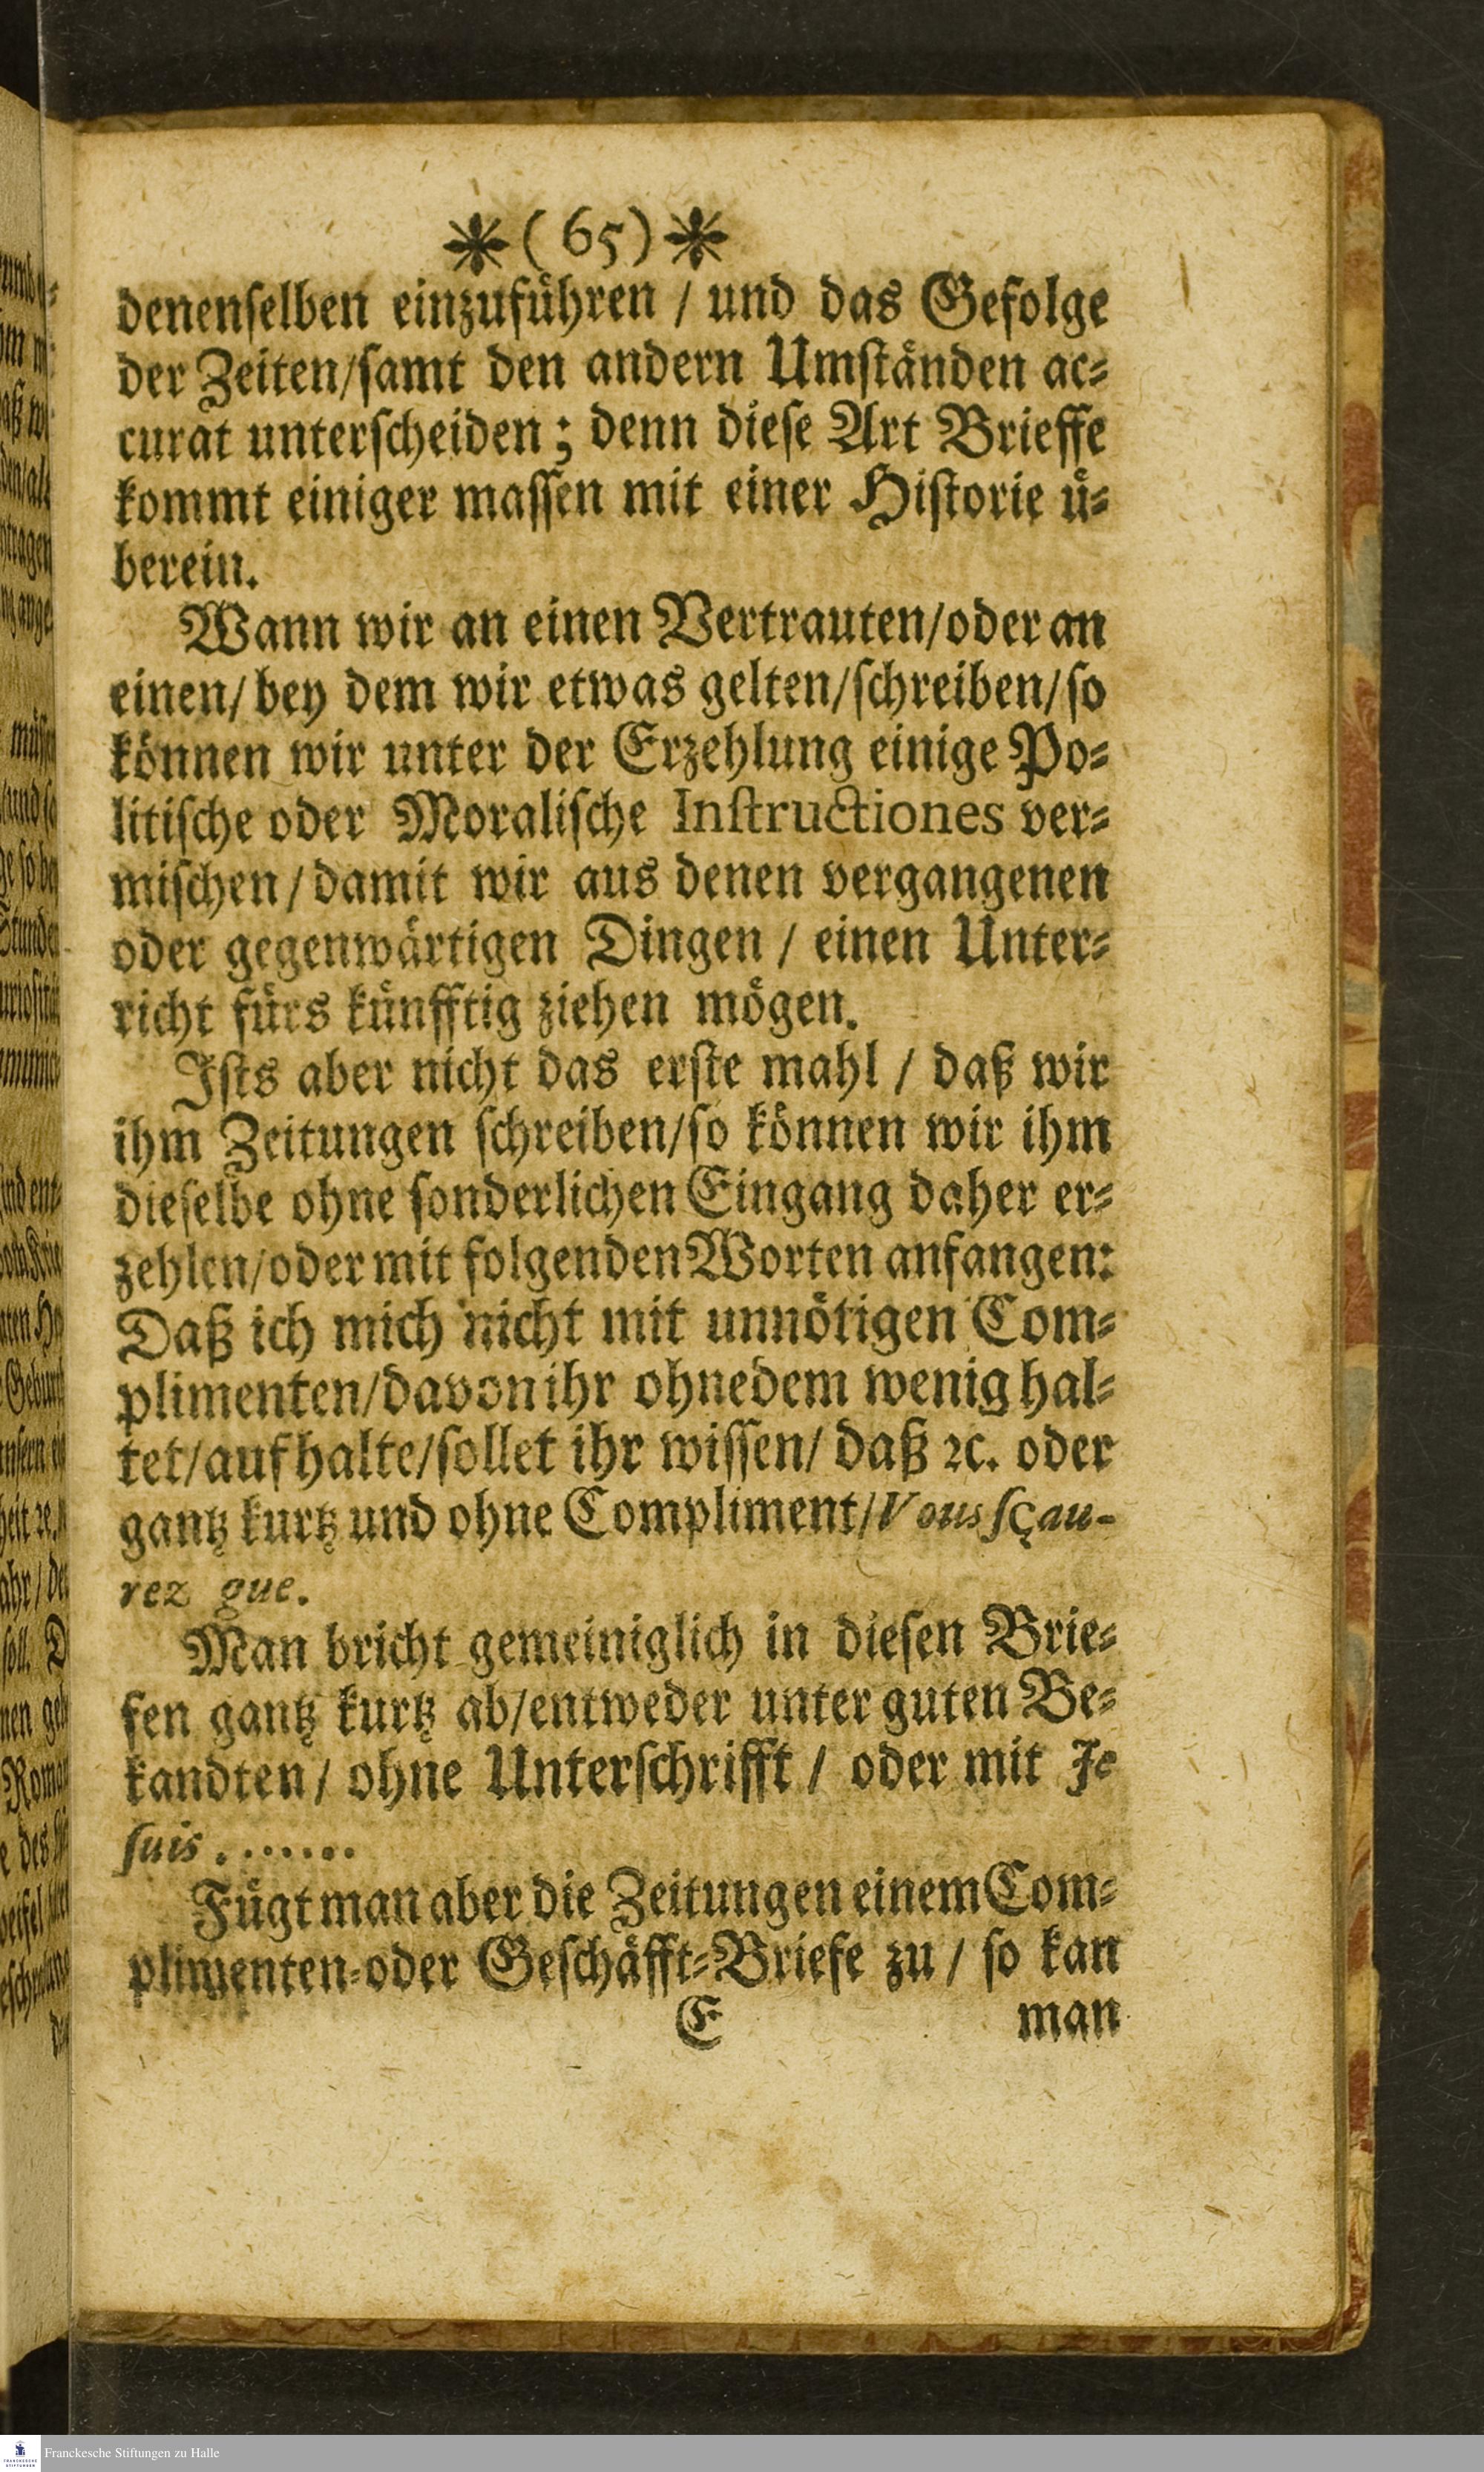 *( 65 )*
denenſelben einzuführen / und das Gefolge
der Zeiten/ſamt den andern Umſtänden ac⸗
curat unterſcheiden; denn dieſe Art Brieffe
kommt einiger maſſen mit einer Hiſtorie ü⸗
berein.
Wann wir an einen Vertrauten/oder an
einen/ bey dem wir etwas gelten/ſchreiben/ſo
können wir unter der Erzehlung einige Po⸗
litiſche oder Moraliſche Inſtructiones ver⸗
miſchen / damit wir aus denen vergangenen
oder gegenwärtigen Dingen / einen Unter⸗
richt fürs künfftig ziehen mögen.
Iſts aber nicht das erſte mahl / daß wir
ihm Zeitungen ſchreiben/ſo können wir ihm
dieſelbe ohne ſonderlichen Eingang daher er⸗
zehlen/oder mit folgenden Worten anfangen:
Daß ich mich nicht mit unnötigen Com⸗
plimenten/davon ihr ohnedem wenig hal⸗
tet/aufhalte/ſollet ihr wiſſen/ daß ꝛc. oder
gantz kurtz und ohne Compliment/Vous ſçau-
rez que.
Man bricht gemeiniglich in dieſen Brie⸗
fen gantz kurtz ab/entweder unter guten Be⸗
kandten/ ohne Unterſchrifft / oder mit Je
ſuis . . . . . . .
Fügt man aber die Zeitungen einem Com⸗
plimenten⸗oder Geſchäfft⸗Briefe zu / ſo kan
E man
Franckesche Stiftungen zu Halle